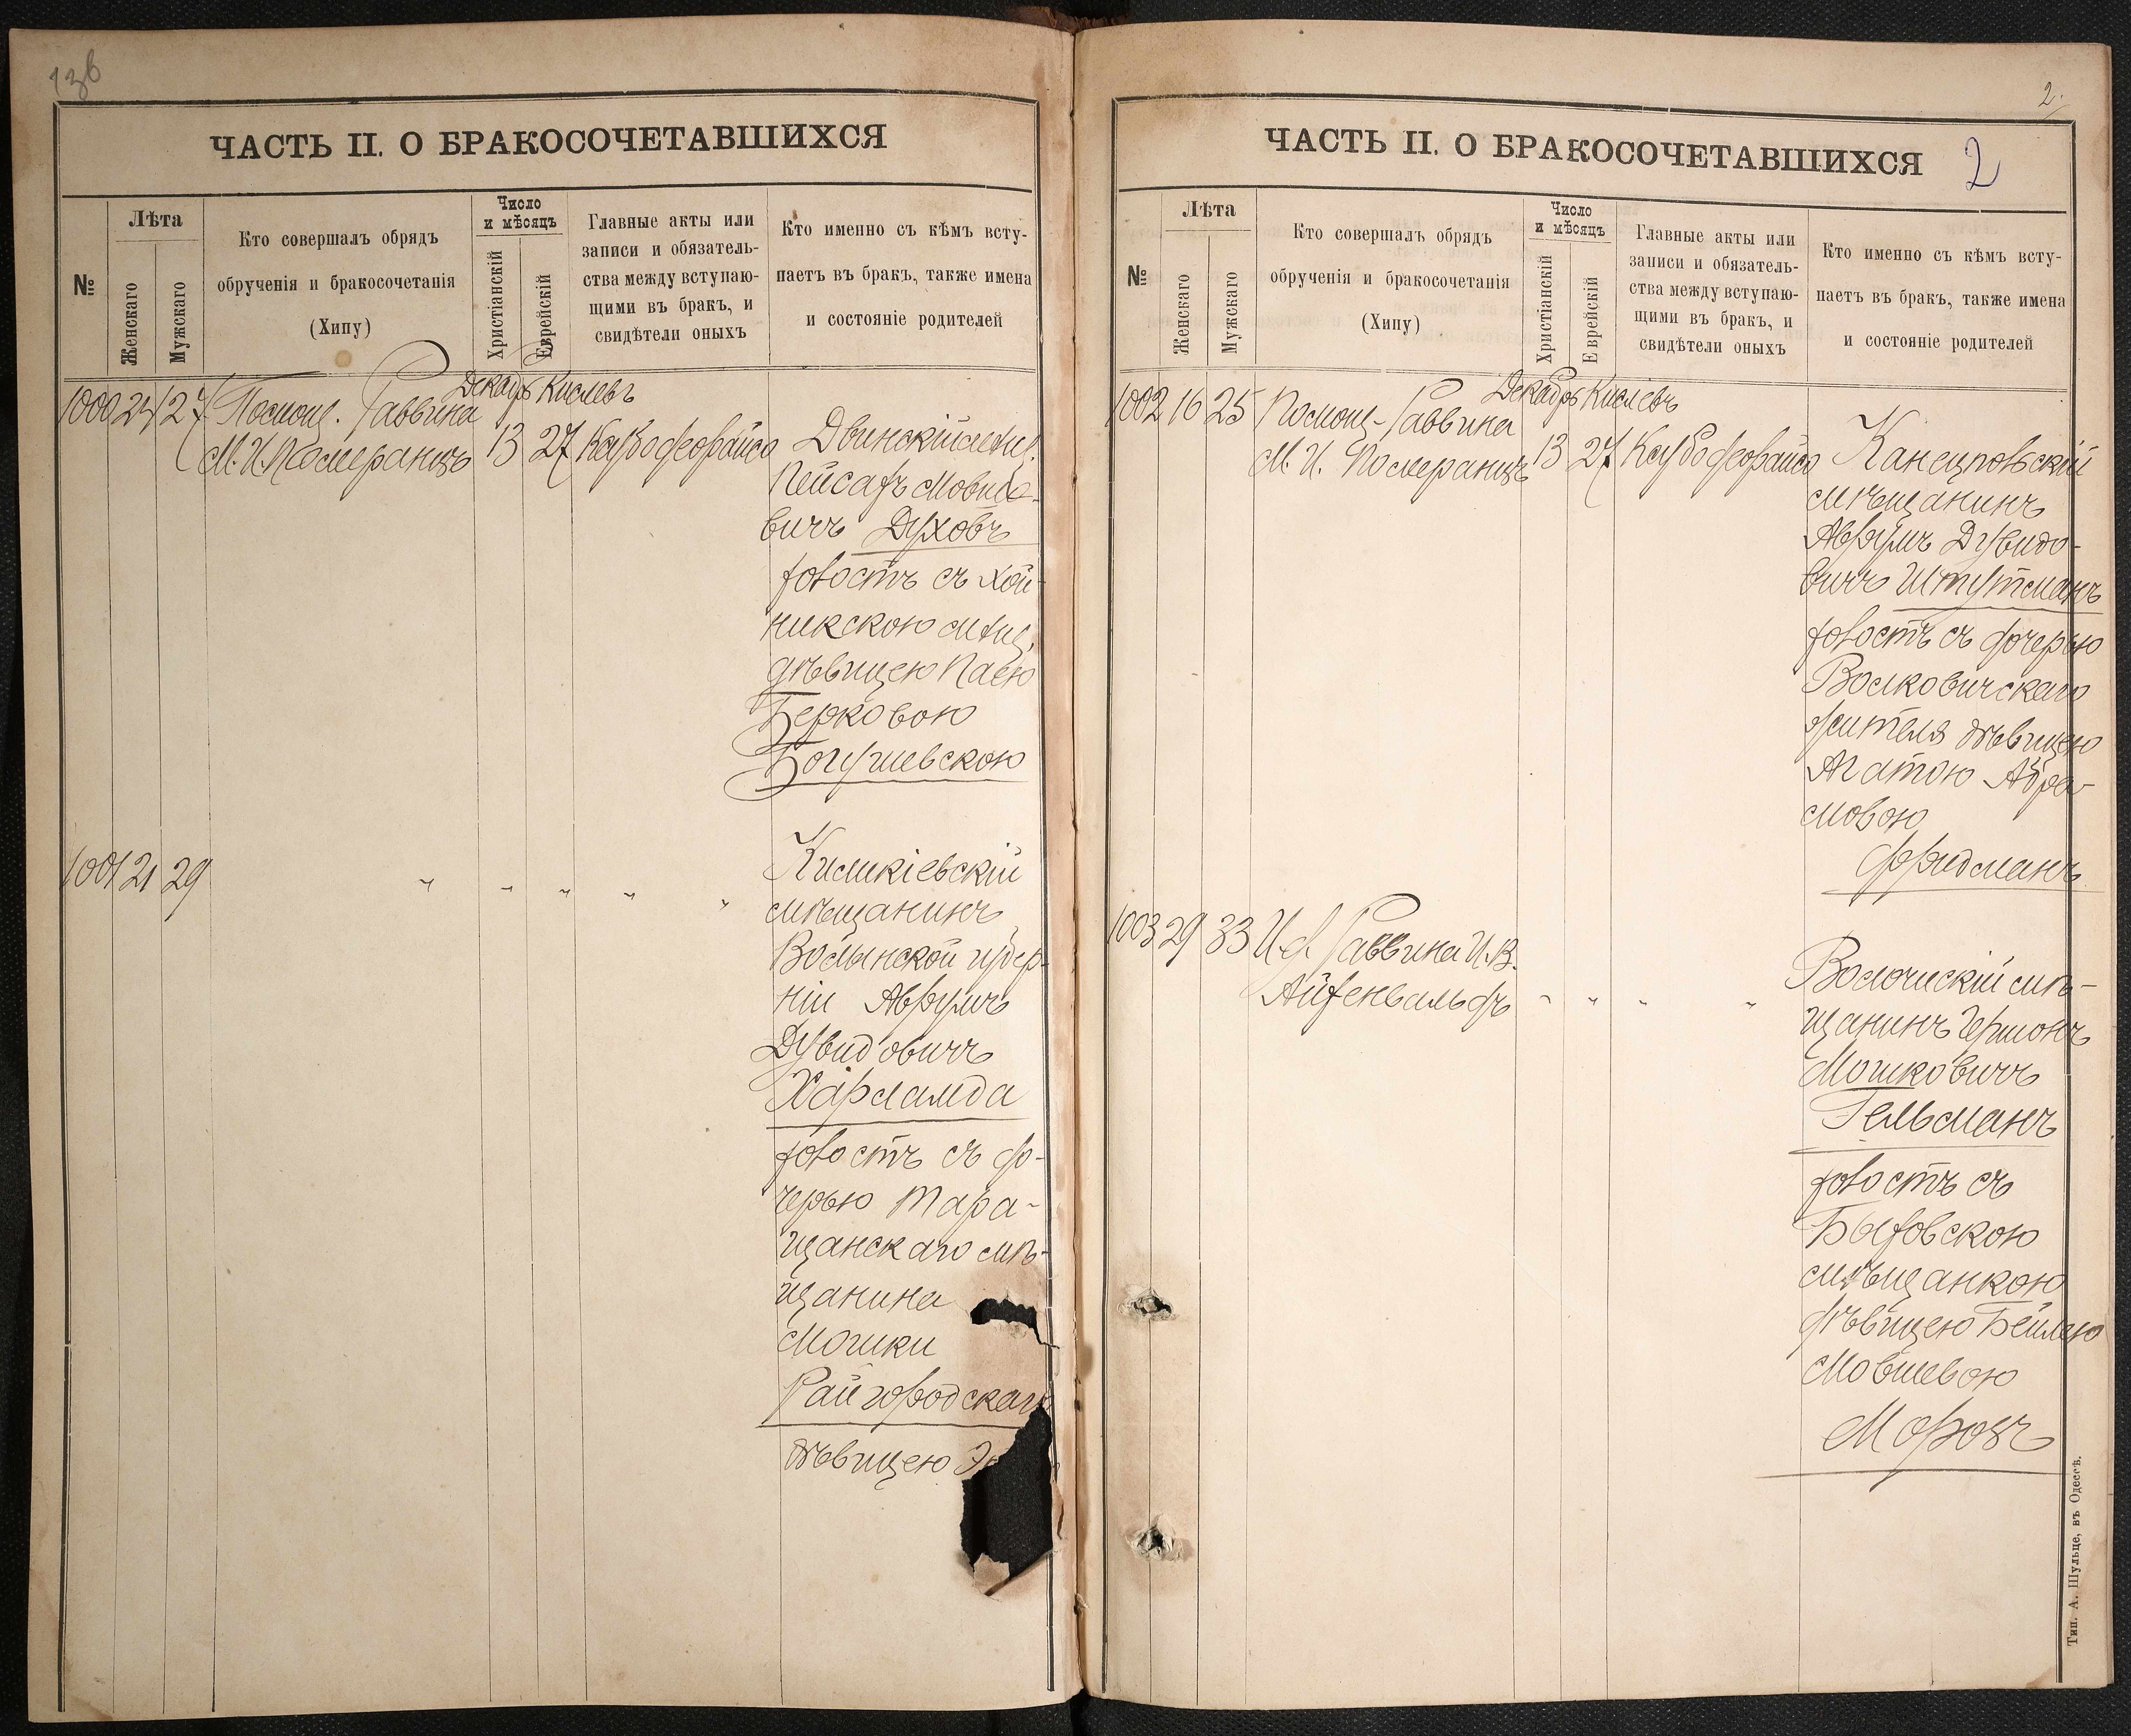 136
ЧАСТЬ II. О БРАКОСОЧЕТАВШИХСЯ
№
Лѣта
Женскаго
Мужскаго
Кто совершалъ обрядъ
обрученія и бракосочетанія
(Хипу)
Число
и мѣсяцъ
Христіанскій
Еврейскій
Главные акты или
записи и обязатель-
ства между вступаю-
щими въ бракъ, и
свидѣтели оныхъ
Кто именно съ кѣмъ всту-
паетъ въ бракъ, также имена
и состояніе родителей
1000 24 27 Помощ. Раввина
М. И. Померанцъ
Декабр Кислевъ
13 27
Двинскій мѣщ.
Пейсахъ Мовшо-
вичъ Духовъ
холостъ съ Хой-
никскою мѣщ.
дѣвицею Паею
Берковою
Богушевскою
1001 21 29 " " " " "
Киликіевскій
мѣщанинъ
Волынской губер-
ніи Аврумъ
Дувидовичъ
Харламба
холостъ съ до-
черью Тара-
щанскаго мѣ-
щанина
Мошки
Райгородскаго
дѣвицею
2.
ЧАСТЬ II. О БРАКОСОЧЕТАВШИХСЯ
2
№
Лѣта
Женскаго
Мужскаго
Кто совершалъ обрядъ
обрученія и бракосочетанія
(Хипу)
Число
и мѣсяцъ
Христіанскій
Еврейскій
Главные акты или
записи и обязатель-
ства между вступаю-
щими въ бракъ, и
свидѣтели оныхъ
Кто именно съ кѣмъ всту-
паетъ въ бракъ, также имена
и состояніе родителей
1002 16 25 Помощ. Раввина
М. И. Померанцъ
Декабр Кислевъ
13 27
Канецпольскій
мѣщанинъ
Аврумъ Дувидо-
вичъ Штутманъ
холостъ съ дочерью
Волковичскаго
жителя дѣвицею
Агатою Абра-
мовою
Фридманъ
1003 29 33 И. д. Раввина И. В.
Айзенвальдъ " " " "
Волочискій мѣ-
щанинъ Гершонъ
Мошковичъ
Гельманъ
холостъ съ
Быховскою
мѣщанкою
дѣвицею Бейлею
Мовшевою
Морозъ
Тип. А. Шульце, въ Одессѣ.